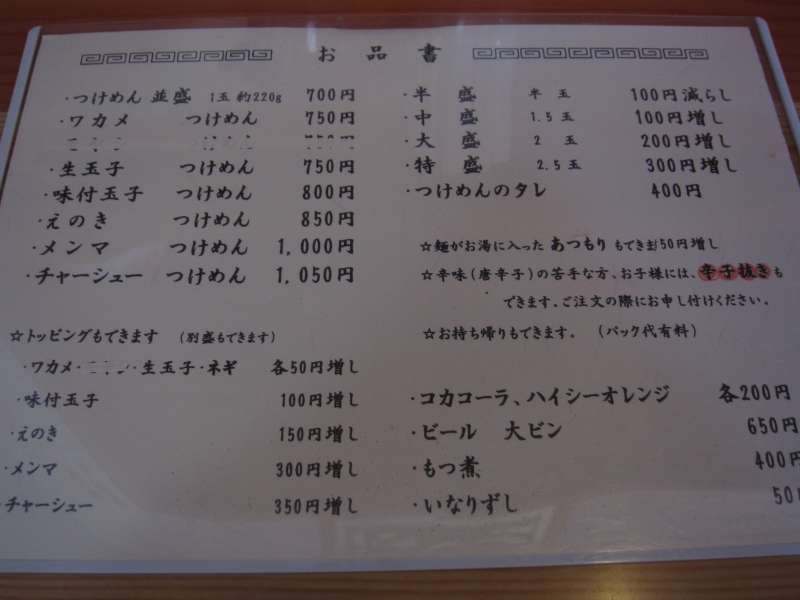 お品書
・つけめん 並盛 1玉 約220g 700円
・ワカメ つけめん 750円
・生玉子 つけめん 750円
・味付玉子 つけめん 800円
・えのき つけめん 850円
・メンマ つけめん 1,000円
・チャーシュー つけめん 1,050円
☆トッピングもできます (別盛もできます)
・ワカメ・ ・生玉子・ネギ 各50円増し
・味付玉子 100円増し
・えのき 150円増し
・メンマ 300円増し
・チャーシュー 350円増し
・半盛 半玉 100円減らし
・中盛 1.5玉 100円増し
・大盛 2玉 200円増し
・特盛 2.5玉 300円増し
・つけめんのタレ 400円
☆麺がお湯に入った あつもり もできます50円増し
☆辛味(唐辛子)の苦手な方、お子様には、辛子抜きも
できます。ご注文の際にお申し付けください。
☆お持ち帰りもできます。 (パック代有料)
・コカコーラ、ハイシーオレンジ 各200円
・ビール 大ビン 650円
・もつ煮 400円
・いなりずし 50円